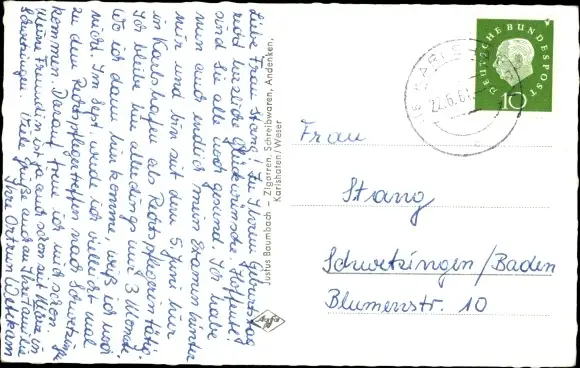 Liebe Frau Stang! Zu Ihrem Geburtstag
recht herzliche Glückwünsche. Hoffentl.
sind Sie alle noch gesund. Ich habe
nun auch endlich mein Examen hinter
mir und bin seit dem 5. Juni hier
in Karlshafen als Rechtspflegerin tätig.
Ich bleibe hier allerdings nur 3 Monate.
Wo ich dann hinkomme, weiß ich noch
nicht. Im Sept. werde ich vielleicht mal
zu dem Rechtspflegertreffen nach Schwetzingen
kommen. Darauf freue ich mich schon.
Meine Freundin ist ja auch schon seit März in
Schwetzingen. Viele Grüße auch an Ihre Familie
Ihre Ortrun
Justus Baumbach - Zigarren, Schreibwaren, Andenken,
Karlshafen/Weser
Agfa
DEUTSCHE BUNDESPOST
10
22.6.61
Frau
Stang
Schwetzingen/Baden
Blumenstr. 10